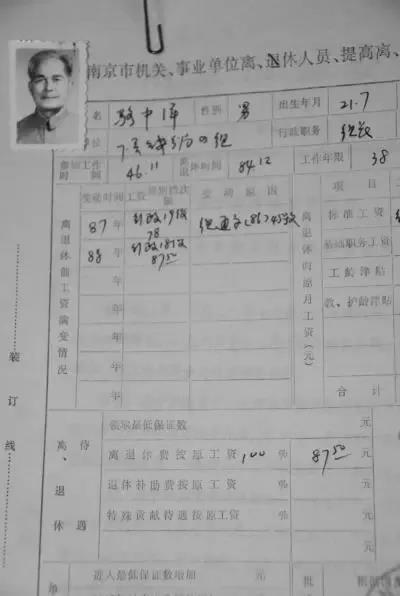 南京市机关、事业单位离、退休人员、提高离、
名 骆中洋 性别 男 出生年月 21.7
位 行政职务
参加工作时间 46.11 离退休时间 84.12 工作年限 38
变动时间 工资 级别档次 额 变动原因 项目
离退休前工资演变情况
87年 行政19级 78
88年 行政18级 87.50
年
年
年
年
离退休时原月工资(元)
标准工资
基础职务工资
工龄津贴
教、护龄津贴
合计
领取最低保证数 元
离、退休 待遇
离退休费按原工资 100 % 87.50 元
退休补助费按原工资 % 元
特殊贡献待遇按原工资 % 元
进入最低保证数增加 元
单 批 根据
装订线